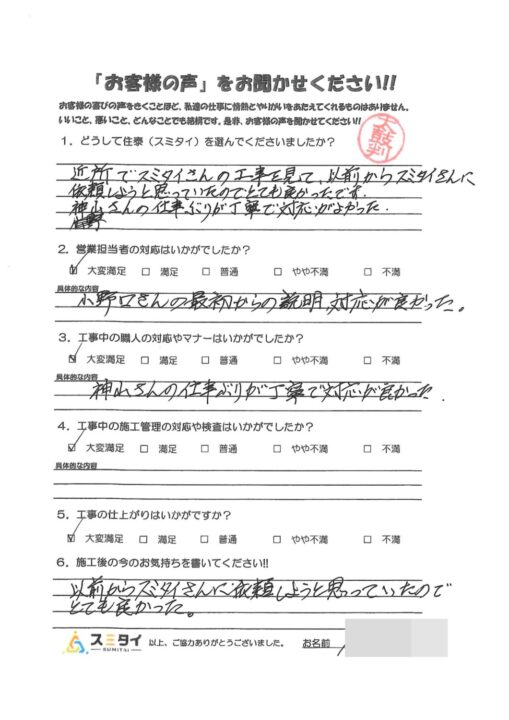 「お客様の声」をお聞かせください!!
お客様の喜びの声をきくことほど、私達の仕事に情熱とやりがいをあたえてくれるものはありません。
いいこと、悪いこと、どんなことでも結構です。是非、お客様の声を聞かせてください!!
太鼓判
1．どうして住泰（スミタイ）を選んでくださいましたか？
近所でスミタイさんの工事を見て、以前からスミタイさんに
依頼しようと思っていたのでとても良かったです.
神山さんの仕事ぶりが丁寧で対応がよかった.
2．営業担当者の対応はいかがでしたか？
☑ 大変満足 □ 満足 □ 普通 □ やや不満 □ 不満
具体的な内容
小野口さんの最初からの説明、対応が良かった。
3．工事中の職人の対応やマナーはいかがでしたか？
☑ 大変満足 □ 満足 □ 普通 □ やや不満 □ 不満
具体的な内容
神山さんの仕事ぶりが丁寧で対応が良かった.
4．工事中の施工管理の対応や検査はいかがでしたか？
☑ 大変満足 □ 満足 □ 普通 □ やや不満 □ 不満
具体的な内容
5．工事の仕上がりはいかがですか？
☑ 大変満足 □ 満足 □ 普通 □ やや不満 □ 不満
6．施工後の今のお気持ちを書いてください!!
以前からスミタイさんに依頼しようと思っていたので
とても良かった。
スミタイ SUMITAI 以上、ご協力ありがとうございました。 お名前